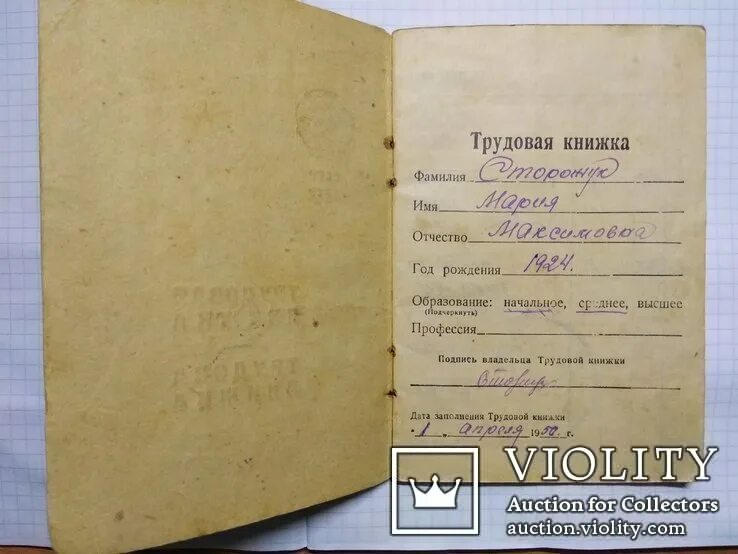 Трудовая книжка
Фамилия Сторожук
Имя Мария
Отчество Максимовна
Год рождения 1924.
Образование: начальное, среднее, высшее
(Подчеркнуть)
Профессия
Подпись владельца Трудовой книжки
Дата заполнения Трудовой книжки
"1" апреля 1950 г.
VIOLITY
Auction for Collectors
auction.violity.com